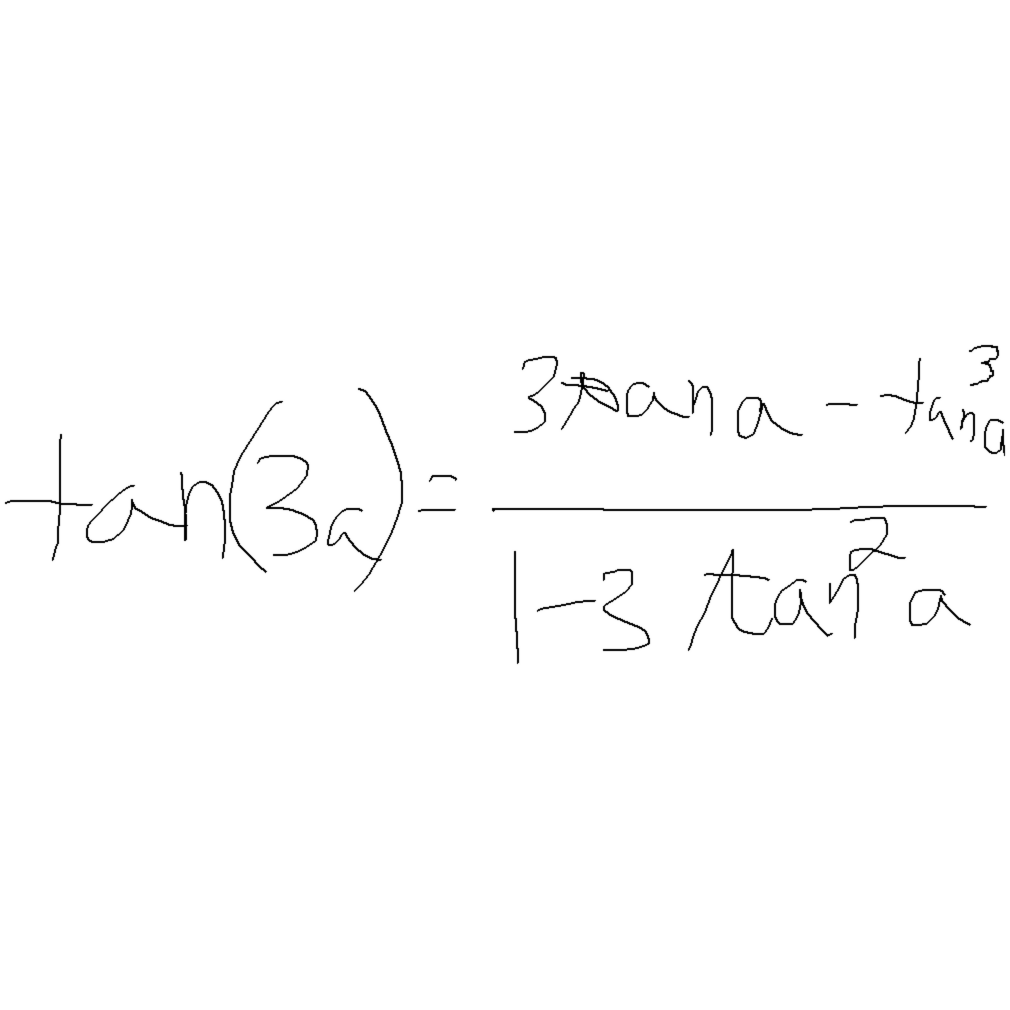 tan(3a) = (3 tan a - tan³a) / (1 - 3 tan² a)